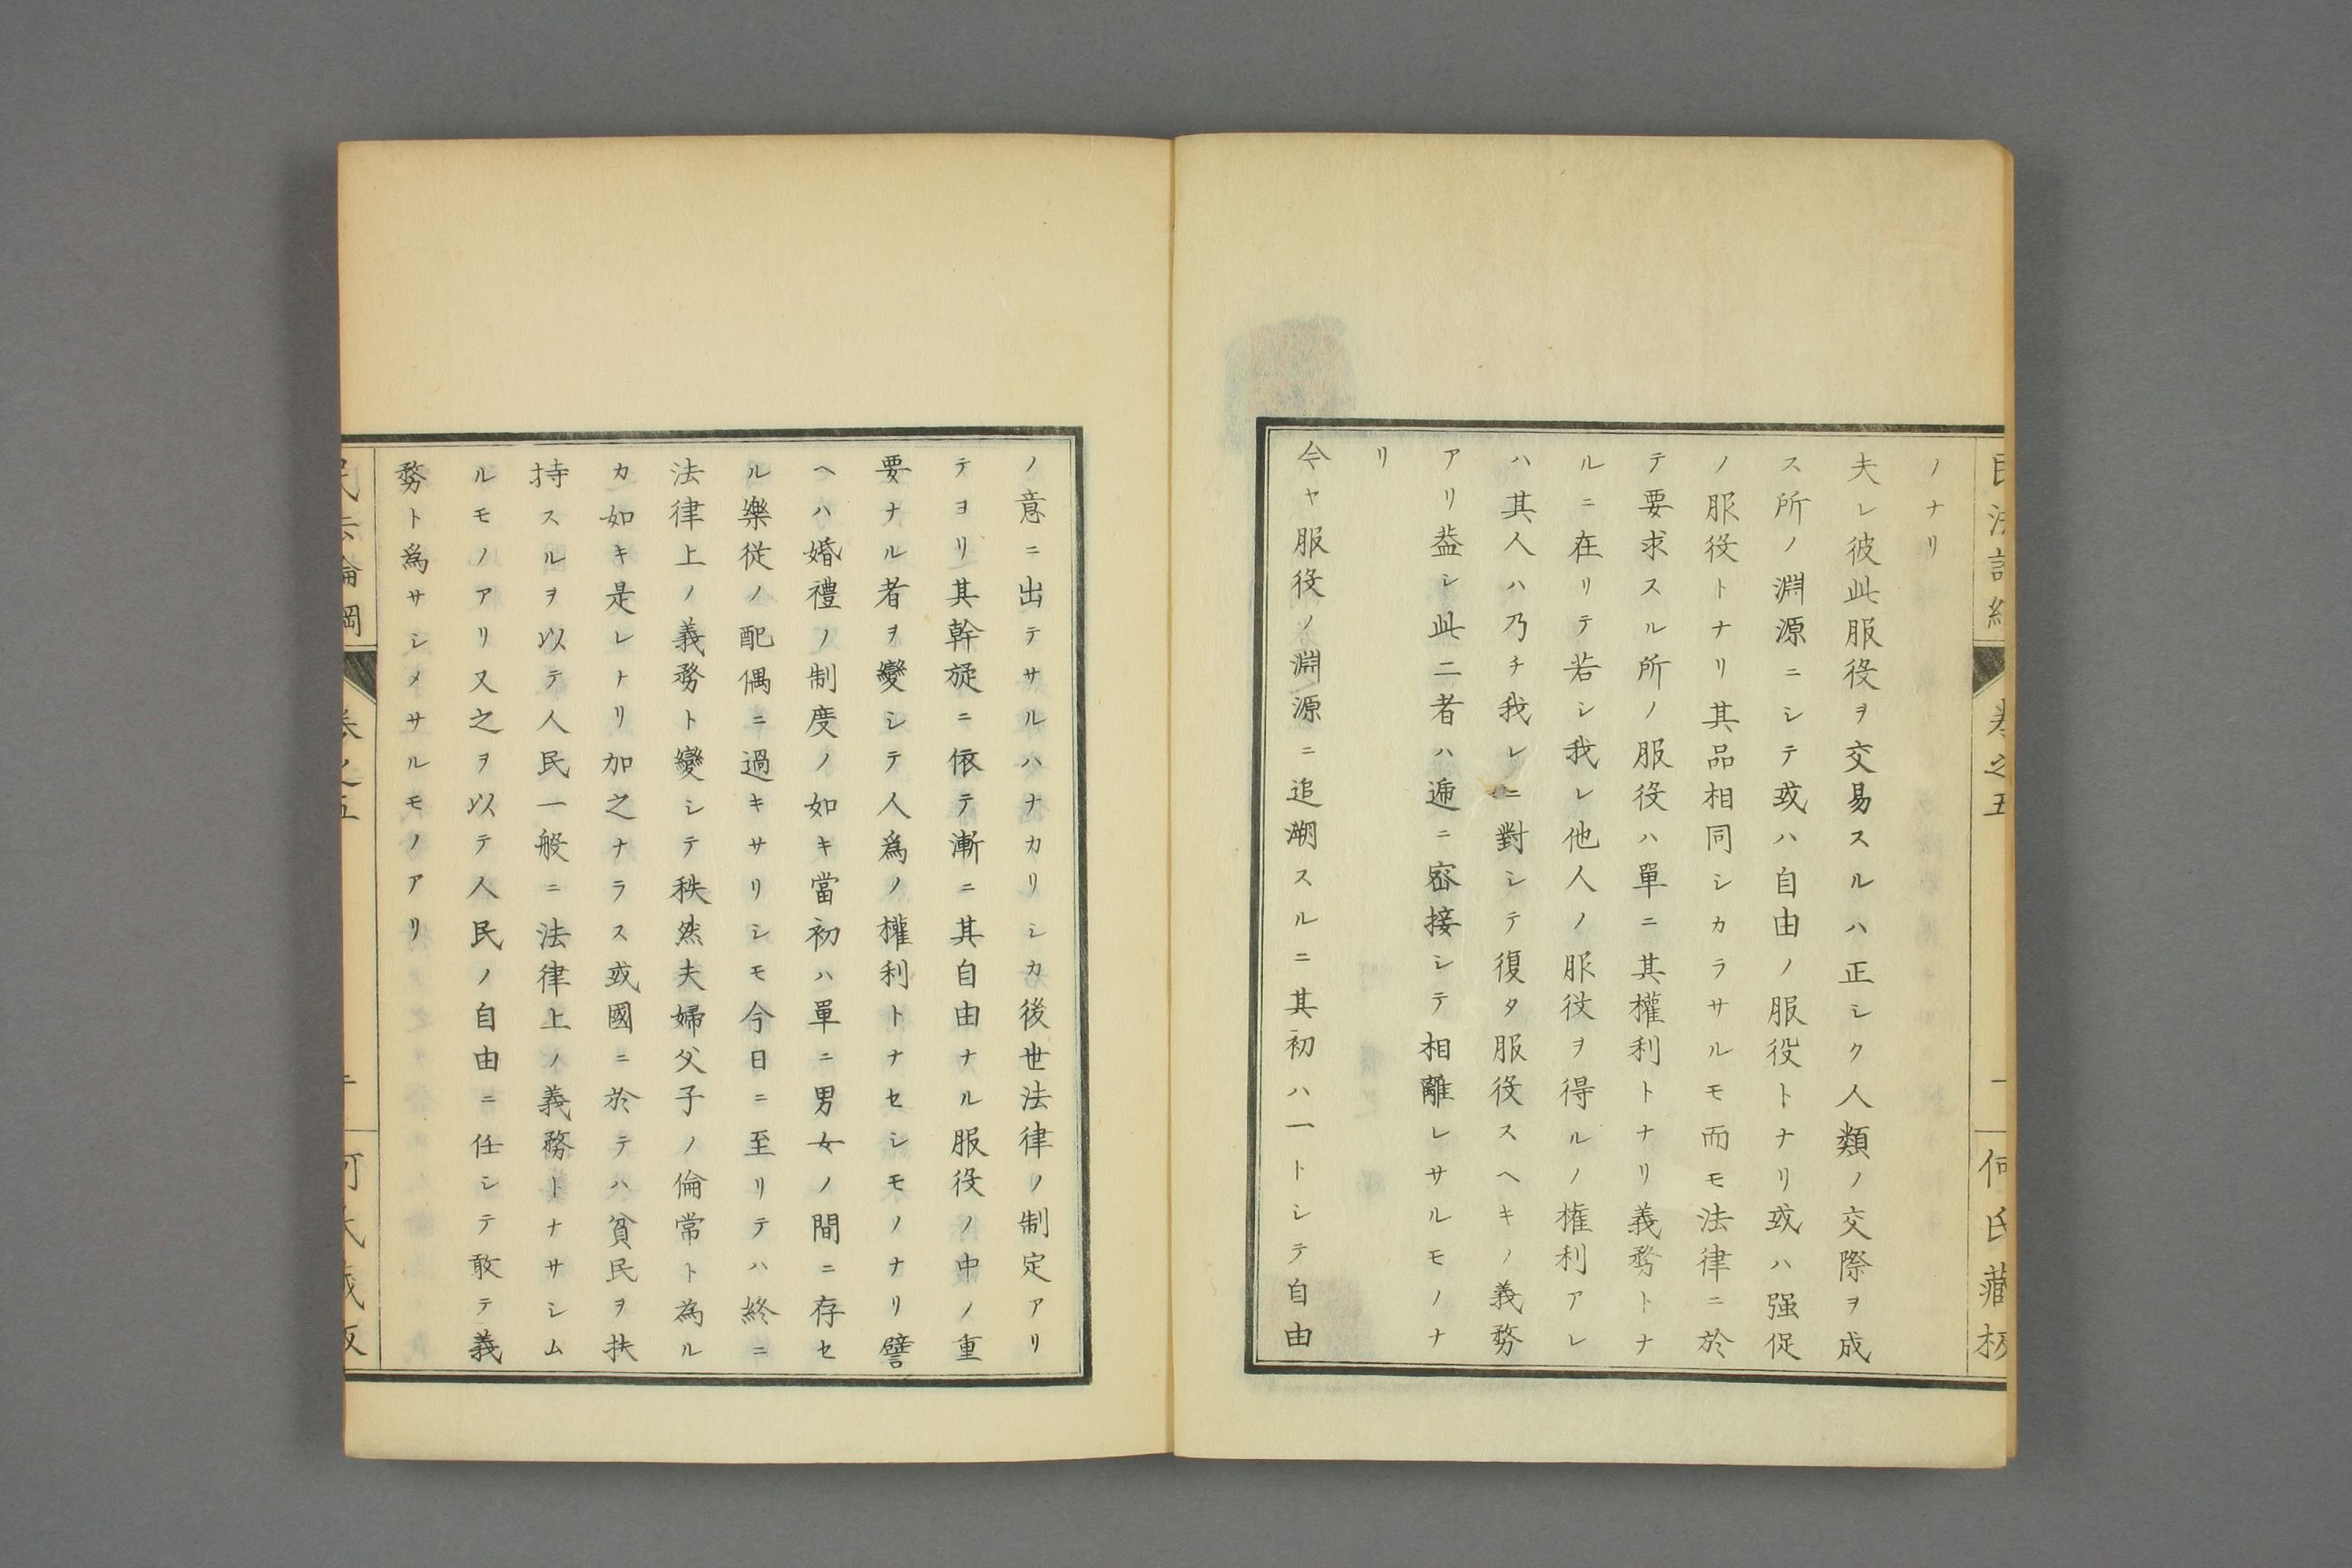 ノナリ
夫レ彼此服役ヲ交易スルハ正シク人類ノ交際ヲ成
ス所ノ淵源ニシテ或ハ自由ノ服役トナリ或ハ强促
ノ服役トナリ其品相同シカラサルモ而モ法律ニ於
テ要求スル所ノ服役ハ單ニ其權利トナリ義務トナ
ルニ在リテ若シ我レ他人ノ服役ヲ得ルノ權利アレ
ハ其人ハ乃チ我レニ對シテ復タ服役スヘキノ義務
アリ葢シ此二者ハ遞ニ密接シテ相離レサルモノナ
リ
今ヤ服役ノ淵源ニ追溯スルニ其初ハ一トシテ自由
ノ意ニ出テサルハナカリシカ後世法律ノ制定アリ
テヨリ其幹旋ニ依テ漸ニ其自由ナル服役ノ中ノ重
要ナル者ヲ變シテ人爲ノ權利トナセシモノナリ譬
ヘハ婚禮ノ制度ノ如キ當初ハ單ニ男女ノ間ニ存セ
ル樂従ノ配偶ニ過キサリシモ今日ニ至リテハ終ニ
法律上ノ義務ト變シテ秩然夫婦父子ノ倫常ト為ル
カ如キ是レトリ加之ナラス或國ニ於テハ貧民ヲ扶
持スルヲ以テ人民一般ニ法律上ノ義務トナサシム
ルモノアリ又之ヲ以テ人民ノ自由ニ任シテ敢テ義
務ト爲サシメサルモノアリ
卷之五
何氏藏板